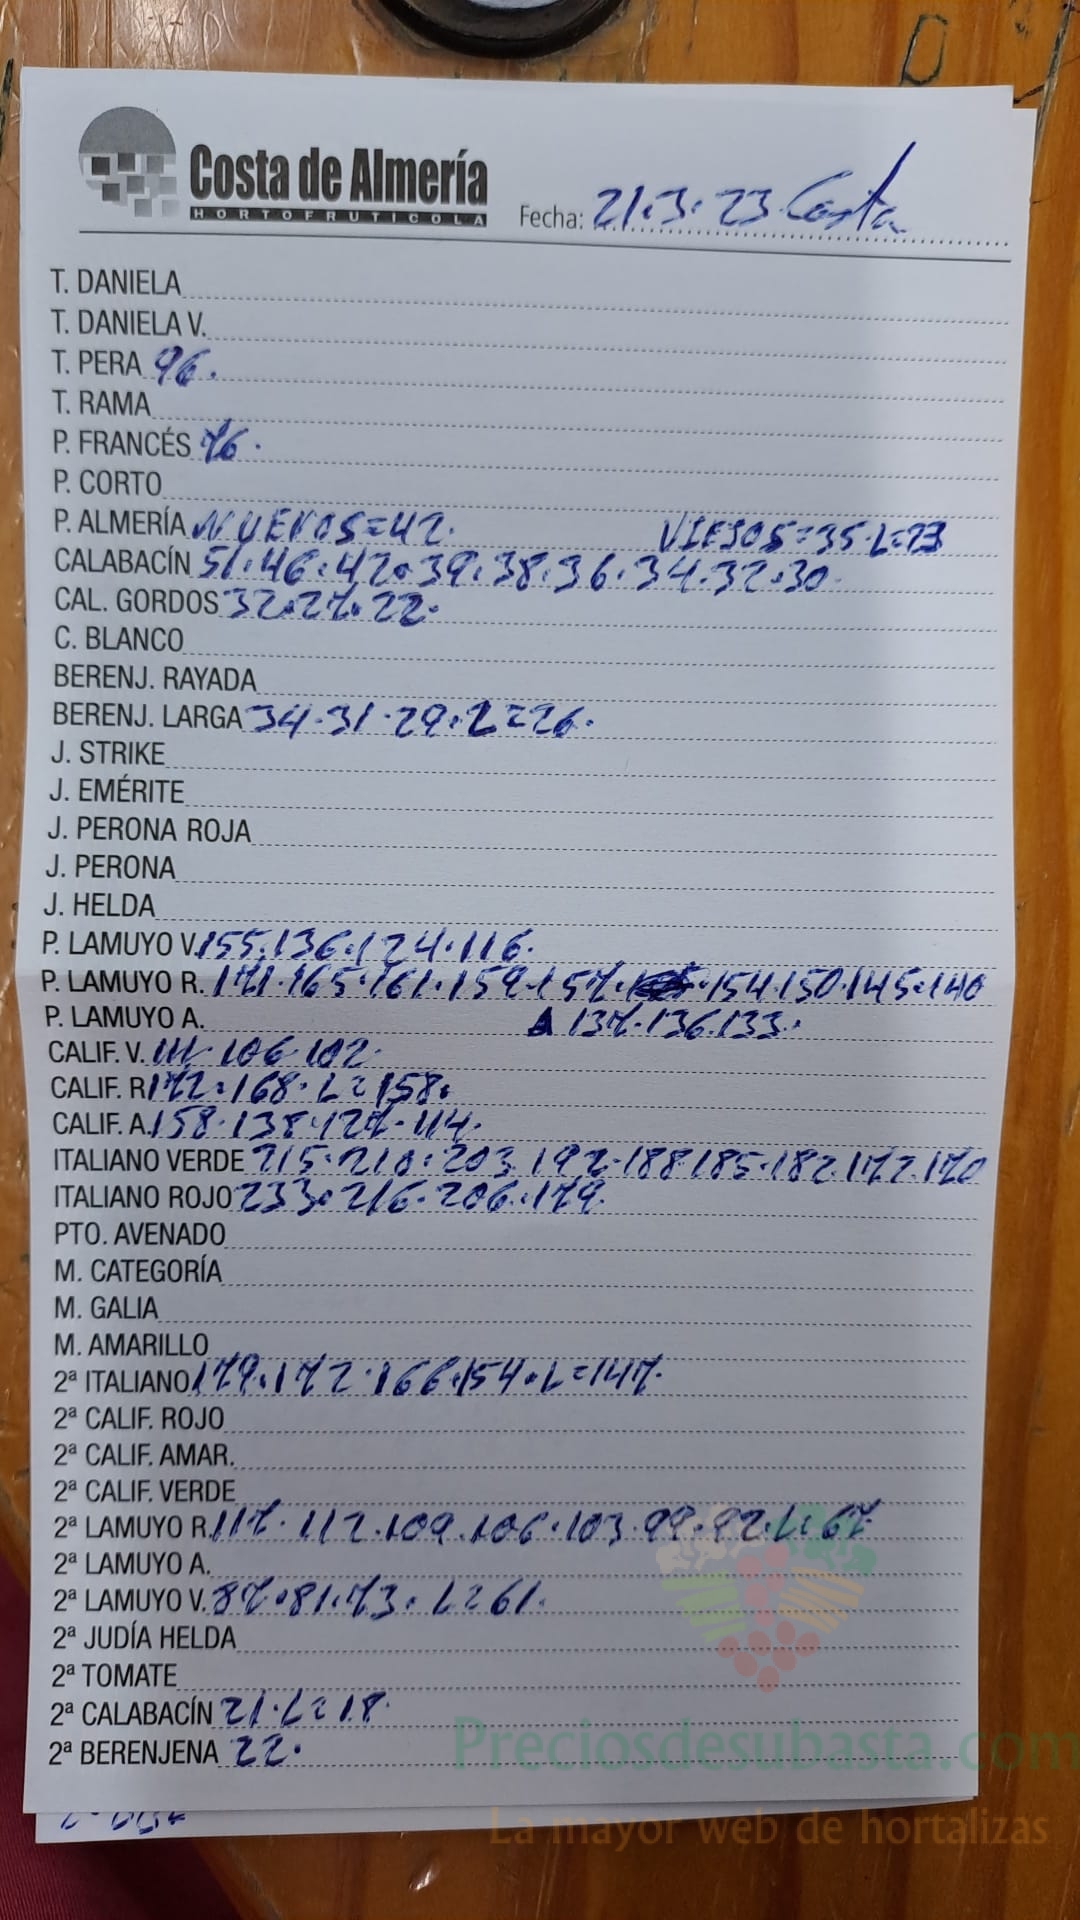 Costa de Almería
HORTOFRUTICOLA
Fecha: 21.3.23 Costa
T. DANIELA
T. DANIELA V.
T. PERA 96.
T. RAMA
P. FRANCÉS 76.
P. CORTO
P. ALMERÍA NUEVOS=42. VIEJOS=35.L=23
CALABACÍN 51.46.42.39.38.36.34.32.30.
CAL. GORDOS 32.27.22.
C. BLANCO
BERENJ. RAYADA
BERENJ. LARGA 34.31.29.L=26.
J. STRIKE
J. EMÉRITE
J. PERONA ROJA
J. PERONA
J. HELDA
P. LAMUYO V. 155.136.124.116.
P. LAMUYO R. 171.165.161.159.157.154.150.145.140
P. LAMUYO A. 137.136.133.
CALIF. V. 111.106.102.
CALIF. R 172.168.L=158.
CALIF. A. 158.138.127.114.
ITALIANO VERDE 215.210.203.192.188.185.182.172.170
ITALIANO ROJO 233.216.206.179.
PTO. AVENADO
M. CATEGORÍA
M. GALIA
M. AMARILLO
2ª ITALIANO 179.172.166.154.L=147.
2ª CALIF. ROJO
2ª CALIF. AMAR.
2ª CALIF. VERDE
2ª LAMUYO R. 117.112.109.106.103.99.92.L=67.
2ª LAMUYO A.
2ª LAMUYO V. 87.81.73.L=61.
2ª JUDÍA HELDA
2ª TOMATE
2ª CALABACÍN 21.L=18.
2ª BERENJENA 22.
Preciosdesubasta.com
La mayor web de hortalizas